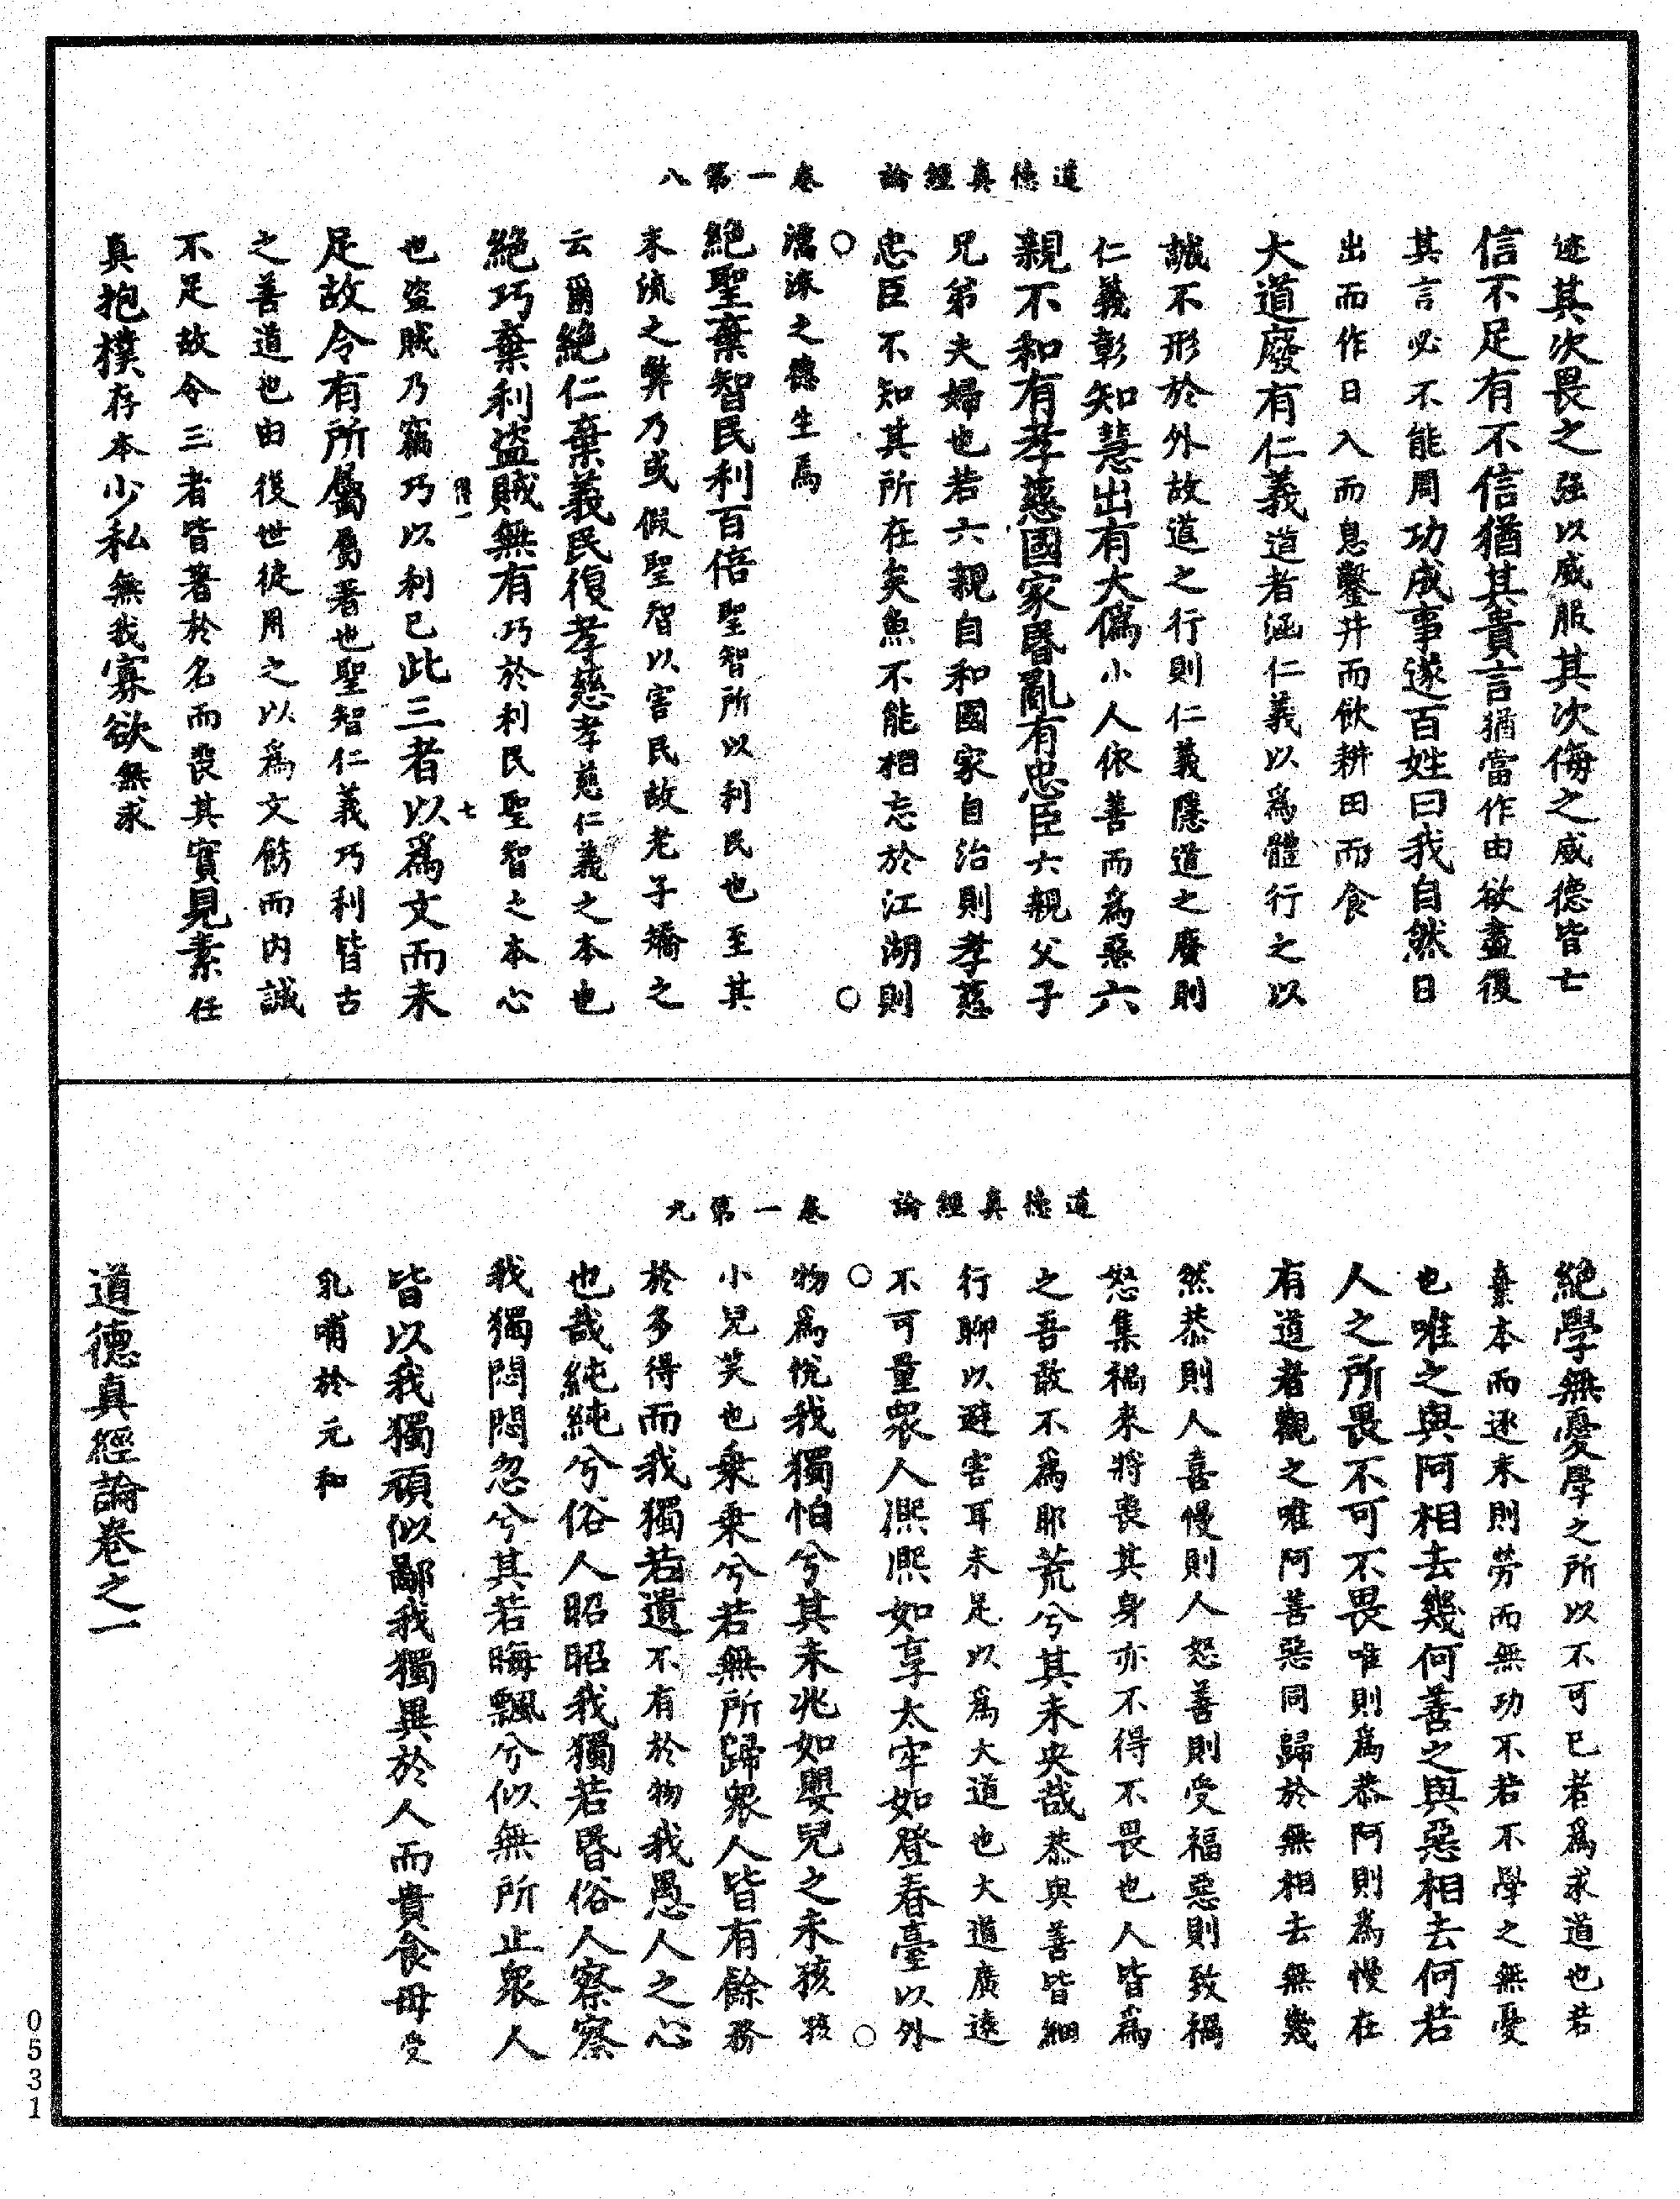 道德真經論　卷一第八
迹其次畏之強以威服其次侮之威德皆亡
信不足有不信猶其貴言猶當作由欲盡復
其言必不能周功成事遂百姓曰我自然日
出而作日入而息鑿井而飲耕田而食
大道廢有仁義道者涵仁義以為體行之以
誠不形於外故道之行則仁義隱道之廢則
仁義彰知慧出有大偽小人依善而為惡六
親不和有孝慈國家昬亂有忠臣六親父子
兄弟夫婦也若六親自和國家自治則孝慈
忠臣不知其所在矣魚不能相忘於江湖則
濡沫之德生焉
絕聖棄智民利百倍聖智所以利民也至其
末流之弊乃或假聖智以害民故老子矯之
云爾絕仁棄義民復孝慈孝慈仁義之本也
絕巧棄利盜賊無有巧於利民聖智之本心
也盜賊乃竊巧以利己此三者以為文而未
七
足故令有所屬屬著也聖智仁義巧利皆古
之善道也由後世徒用之以為文飾而內誠
不足故令三者皆著於名而喪其實見素任
真抱樸存本少私無我寡欲無求
道德真經論　卷一第九
絕學無憂學之所以不可已者為求道也若
棄本而逐末則勞而無功不若不學之無憂
也唯之與阿相去幾何善之與惡相去何若
人之所畏不可不畏唯則為恭阿則為慢在
有道者觀之唯阿善惡同歸於無相去無幾
然恭則人喜慢則人怒善則受福惡則致禍
怒集禍來將喪其身亦不得不畏也人皆為
之吾敢不為耶荒兮其未央哉恭與善皆細
行聊以避害耳未足以為大道也大道廣遠
不可量眾人熈熈如享太牢如登春臺以外
物為悅我獨怕兮其未兆如嬰兒之未孩孩
小兒笑也乘乘兮若無所歸眾人皆有餘務
於多得而我獨若遺不有於物我愚人之心
也哉純純兮俗人昭昭我獨若昬俗人察察
我獨悶悶忽兮其若晦飄兮似無所止眾人
皆以我獨頑似鄙我獨異於人而貴食母受
乳哺於元和
道德真經論卷之一
0531